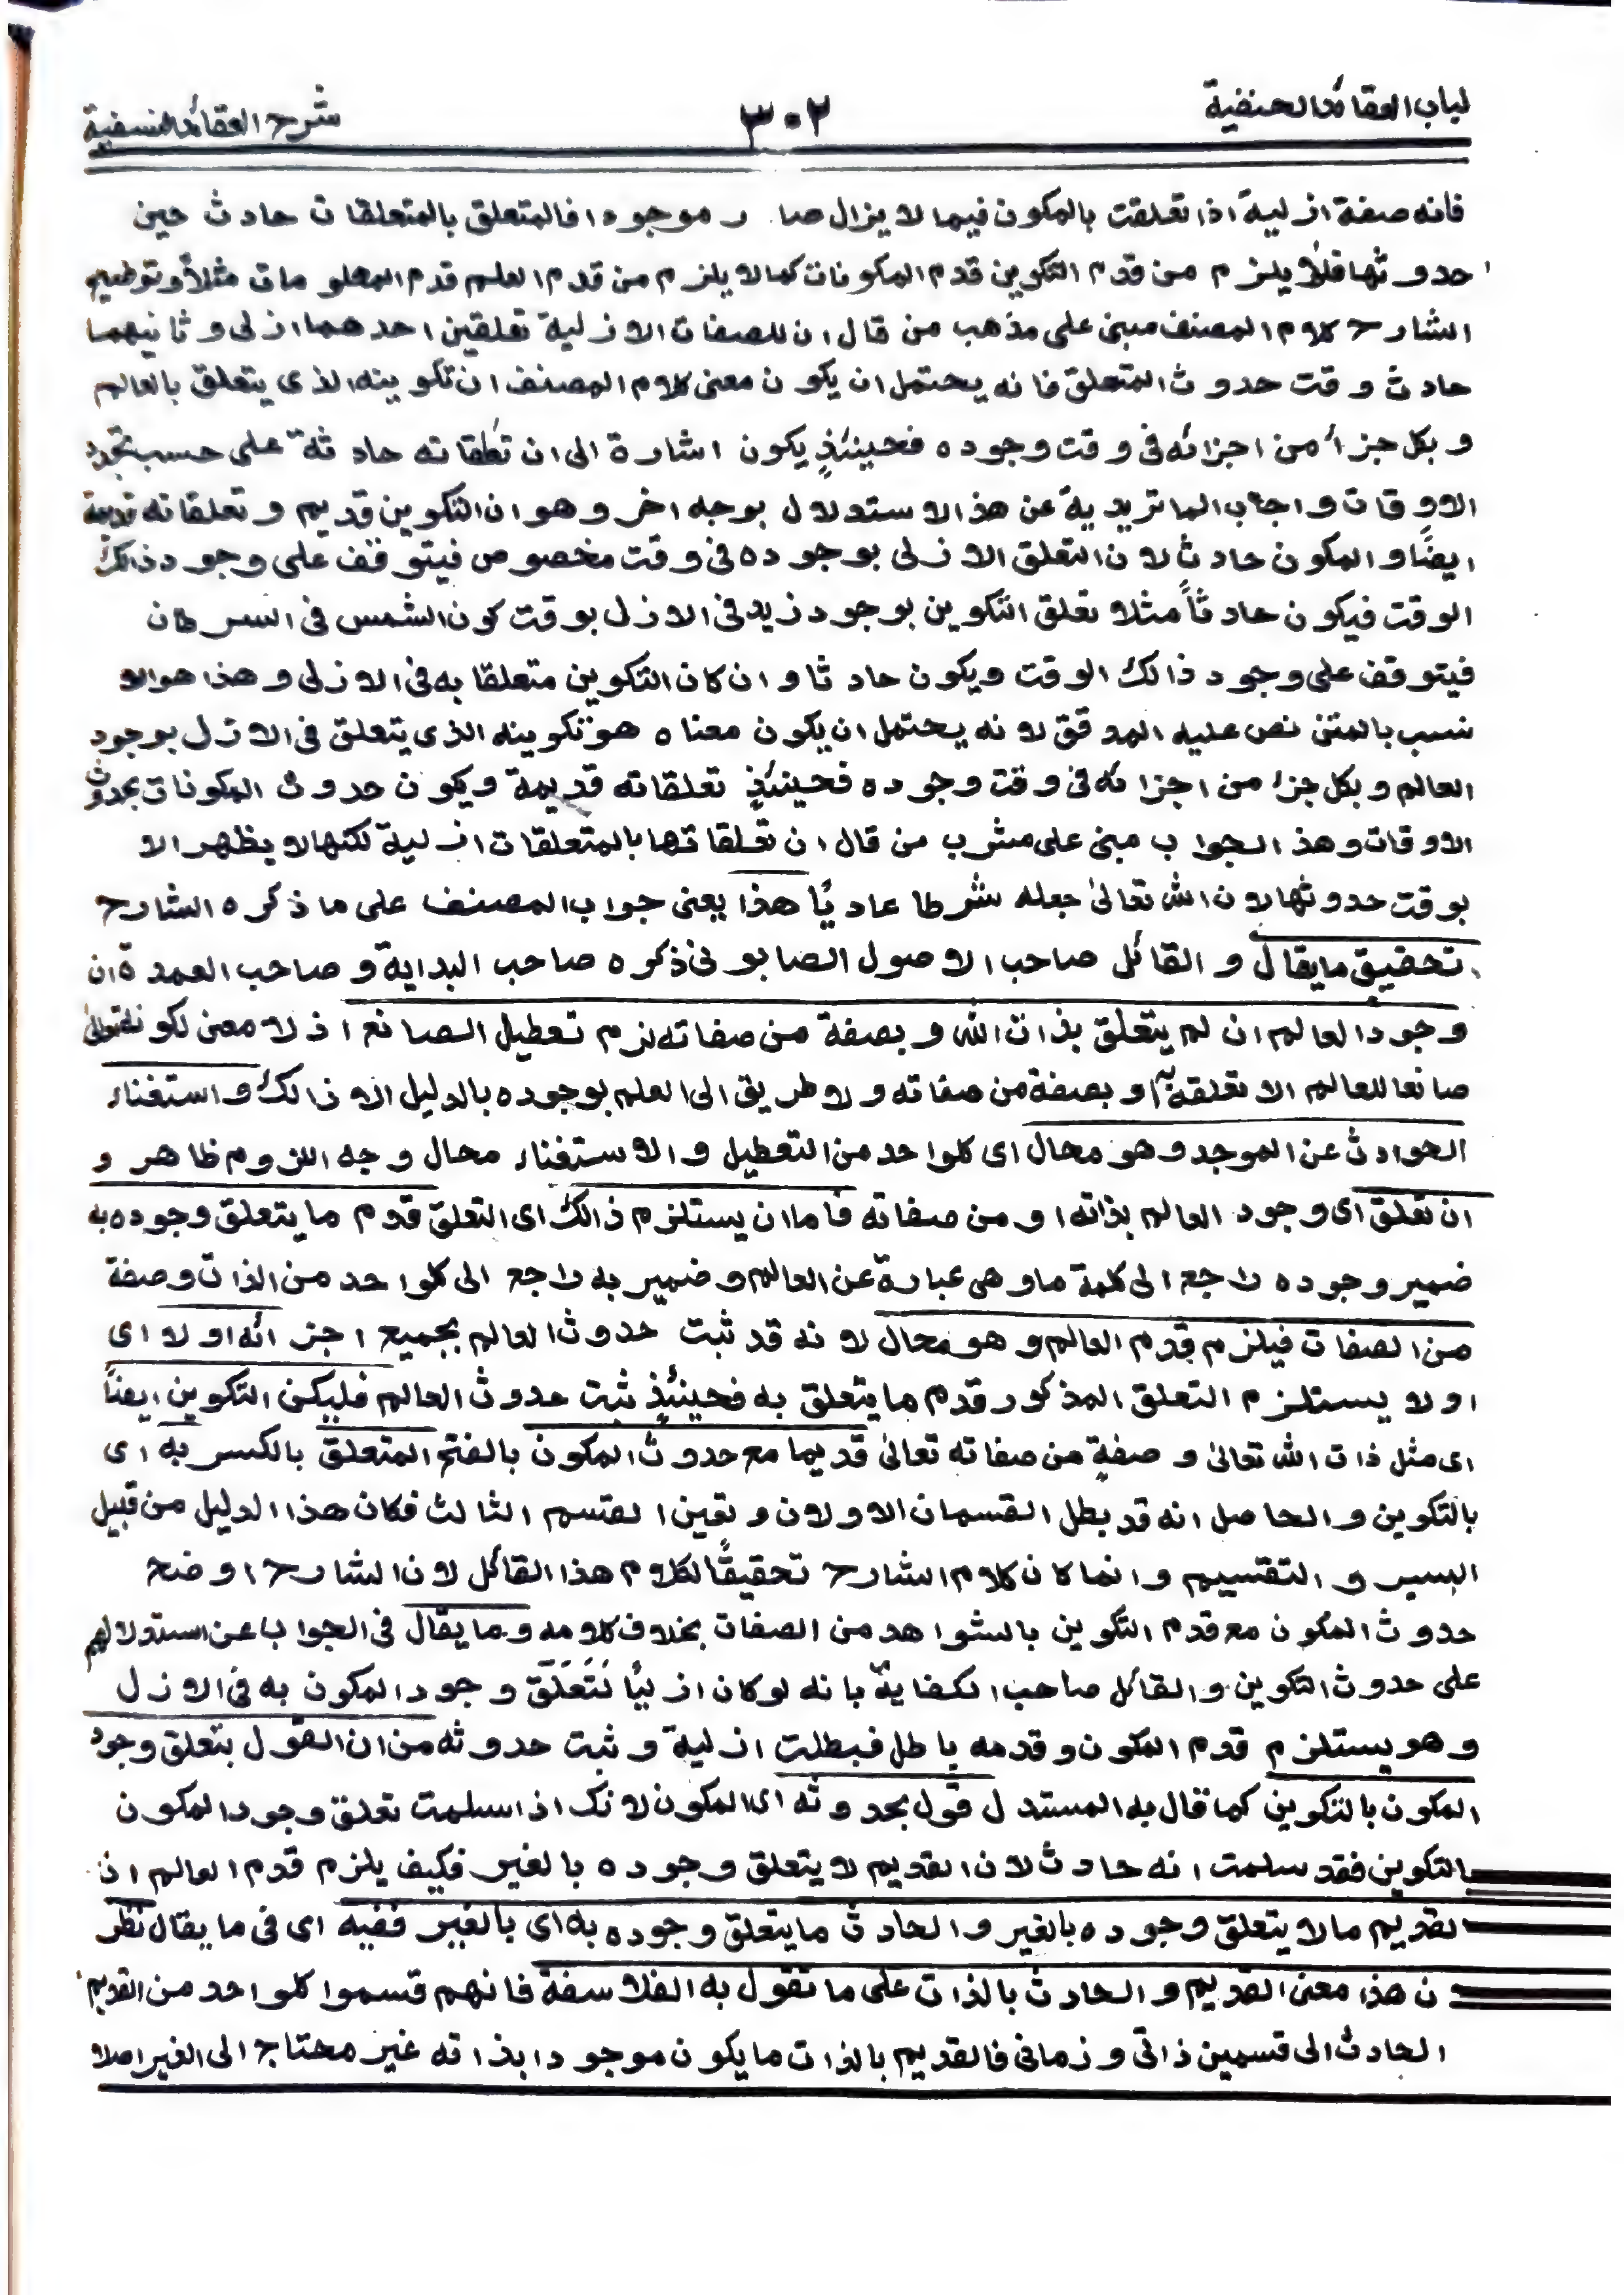 لباب العقائد الحنفية
٣٠٢
شرح العقائد النسفية
فانه صفة ازلية اذا تعلقت بالمكون فيما لا يزال صا ر موجودا فالمتعلق بالمتعلقات حادث حين
حدوثها فلا يلزم من قدم التكوين قدم المكونات كما لا يلزم من قدم العلم قدم المعلومات مثلاً وتوضيح
الشارح كلام المصنف مبنى على مذهب من قال ان للصفات الازلية تعلقين احدهما ازلى و ثانيهما
حادث وقت حدوث المتعلق فانه يحتمل ان يكون معنى كلام المصنف ان تكوينه الذى يتعلق بالعالم
و بكل جزأ من اجزائه فى وقت وجوده فحينئذٍ يكون اشارة الى ان تعلقاته حادثة على حسب تجدد
الاوقات و اجاب الماتريدية عن هذ الاستدلال بوجه اخر و هو ان التكوين قديم و تعلقاته قديمة
ايضًا و المكون حادث لان التعلق الازلى بوجوده فى وقت مخصوص فيتوقف على وجود ذالك
الوقت فيكون حادثاً مثلا تعلق التكوين بوجود زيد فى الازل بوقت كون الشمس فى السرطان
فيتوقف على وجود ذالك الوقت ويكون حادثا و ان كان التكوين متعلقا به فى الازلى و هذا هو الا
نسب بالمتن نص عليه المدقق لانه يحتمل ان يكون معناه هو تكوينه الذى يتعلق فى الازل بوجود
العالم و بكل جزء من اجزائه فى وقت وجوده فحينئذٍ تعلقاته قديمة ويكون حدوث المكونات بحدوث
الاوقات وهذ الجواب مبنى على مشرب من قال ان تعلقاتها بالمتعلقات ازلية لكنها لا يظهر الا
بوقت حدوثها لان الله تعالىٰ جعله شرطا عاديًا هذا يعنى جواب المصنف على ما ذكره الشارح
تحقيق ما يقال و القائل صاحب الاصول الصابونى ذكره صاحب البداية و صاحب العمدة ان
وجود العالم ان لم يتعلق بذات الله و بصفة من صفاته لزم تعطيل الصانع اذ لا معنى لكونه تعالىٰ
صانعا للعالم الا تعلقه به او بصفة من صفاته و لا طريق الى العلم بوجوده بالدليل الا ذالك و استغناء
الحوادث عن الموجد و هو محال اى كلواحد من التعطيل و الاستغناء محال وجه اللزوم ظاهر و
ان تعلق اى وجود العالم بذاته او من صفاته فاما ان يستلزم ذالك اى التعلق قدم ما يتعلق وجوده به
ضمير وجوده راجع الى كلمة ما و هى عبارة عن العالم و ضمير به راجع الى كلواحد من الذات وصفة
من الصفات فيلزم قدم العالم و هو محال لانه قد ثبت حدوث العالم بجميع اجزائه او لا اى
او لا يستلزم التعلق المذكور قدم ما يتعلق به فحينئذٍ ثبت حدوث العالم فليكن التكوين ايضاً
اى مثل ذات الله تعالىٰ و صفةٍ من صفاته تعالىٰ قديما مع حدوث المكون بالفتح المتعلق بالكسر به اى
بالتكوين و الحاصل انه قد بطل القسمان الاولان و تعين القسم الثالث فكان هذا الدليل من قبيل
السير و التقسيم و انما كان كلام الشارح تحقيقًا لكلام هذا القائل لان الشارح اوضح
حدوث المكون مع قدم التكوين بالشواهد من الصفات بخلاف كلامه و ما يقال فى الجواب عن استدلالهم
على حدوث التكوين و القائل صاحب الكفاية بانه لو كان ازليًا لَتَعَلَّقَ وجود المكون به فى الازل
و هو يستلزم قدم المكون و قدمه باطل فبطلت ازلية و ثبت حدوثه من ان القول بتعلق وجود
المكون بالتكوين كما قال به المستدل قول بحدوثه اى المكون لانك اذا سلمت تعلق وجود المكون
بالتكوين فقد سلمت انه حادث لان القديم لا يتعلق وجوده بالغير فكيف يلزم قدم العالم ان
القديم ما لا يتعلق وجوده بالغير و الحادث ما يتعلق وجوده به اى بالغير ففيه اى فى ما يقال نظر
ن هذا معنى القديم و الحادث بالذات على ما تقول به الفلاسفة فانهم قسموا كلواحد من القديم
الحادث الى قسمين ذاتى و زمانى فالقديم بالذات ما يكون موجودا بذاته غير محتاج الى الغير اصلا